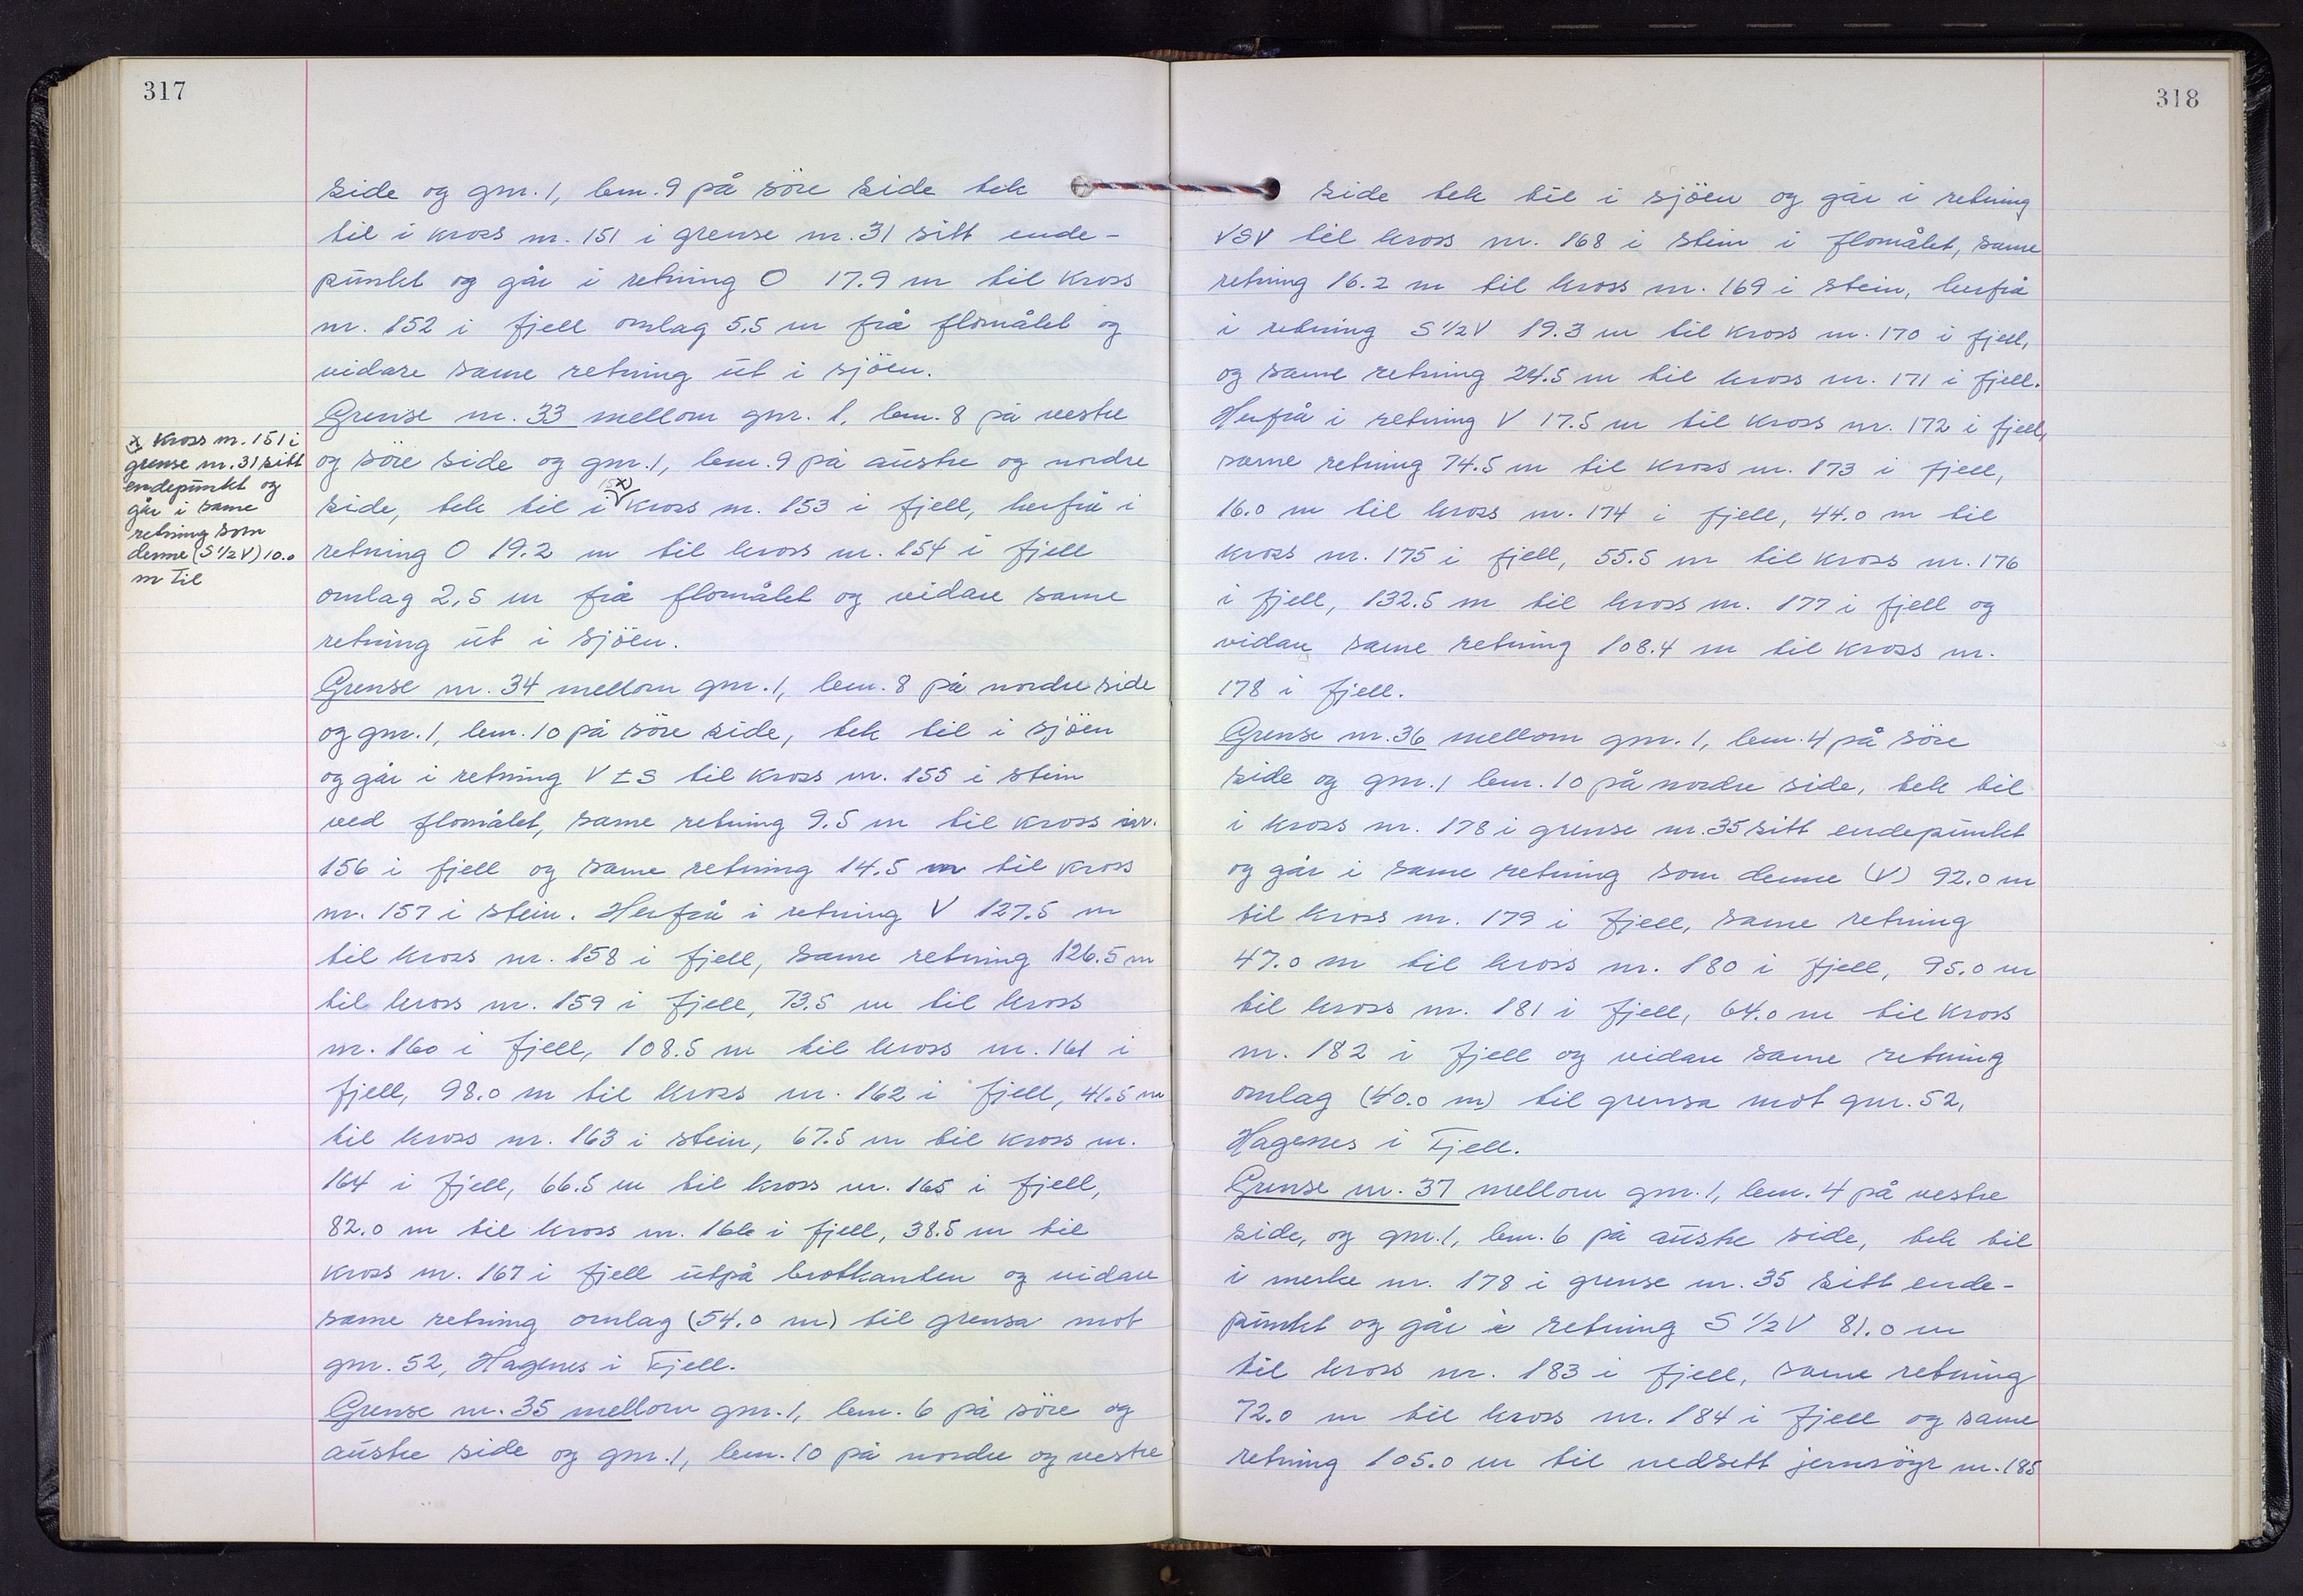 317
side og gnr. 1, lem. 9 på söre side tek
til i kross nr. 151 i grense nr. 31 sitt ende-
punkt og går i retning O 17.9 m til kross
nr. 152 i fjell omlag 5.5 m frå flomålet og
vidare same retning ut i sjöen.
Grense nr. 33 mellom gnr. 1, lem. 8 på vestre
og söre side og gnr. 1, lem. 9 på austre og nordre
side, tek til i x) kross nr. 153 i fjell, herfrå i
retning O 19.2 m til kross nr. 154 i fjell
omlag 2,5 m frå flomålet og vidare same
retning ut i sjöen.
x) kross nr. 151 i
grense nr. 31 sitt
endepunkt og
går i same
retning som
denne (S 1/2 V) 10.0
m til
Grense nr. 34 mellom gnr. 1, lem. 8 på nordre side
og gnr. 1, lem. 10 på söre side, tek til i sjöen
og går i retning V t S til kross nr. 155 i stein
ved flomålet, same retning 9.5 m til kross nr.
156 i fjell og same retning 14.5 m til kross
nr. 157 i stein. Herfrå i retning V 127.5 m
til kross nr. 158 i fjell, same retning 126.5 m
til kross nr. 159 i fjell, 73.5 m til kross
nr. 160 i fjell, 108.5 m til kross nr. 161 i
fjell, 98.0 m til kross nr. 162 i fjell, 41.5 m
til kross nr. 163 i stein, 67.5 m til kross nr.
164 i fjell, 66.5 m til kross nr. 165 i fjell,
82.0 m til kross nr. 166 i fjell, 38.5 m til
kross nr. 167 i fjell utpå brotkanten og vidare
same retning omlag (54.0 m) til grensa mot
gnr. 52, Hagenes i Fjell.
Grense nr. 35 mellom gnr. 1, lem. 6 på söre og
austre side og gnr. 1, lem. 10 på nordre og vestre
318
side tek til i sjöen og går i retning
VSV til kross nr. 168 i stein i flomålet, same
retning 16.2 m til kross nr. 169 i stein, herfrå
i retning S 1/2 V 19.3 m til kross nr. 170 i fjell,
og same retning 24.5 m til kross nr. 171 i fjell.
Herfrå i retning V 17.5 m til kross nr. 172 i fjell,
same retning 74.5 m til kross nr. 173 i fjell,
16.0 m til kross nr. 174 i fjell, 44.0 m til
kross nr. 175 i fjell, 55.5 m til kross nr. 176
i fjell, 132.5 m til kross nr. 177 i fjell og
vidare same retning 108.4 m til kross nr.
178 i fjell.
Grense nr. 36 mellom gnr. 1, lem. 4 på söre
side og gnr. 1 lem. 10 på nordre side, tek til
i kross nr. 178 i grense nr. 35 sitt endepunkt
og går i same retning som denne (V) 92.0 m
til kross nr. 179 i fjell, same retning
47.0 m til kross nr. 180 i fjell, 95.0 m
til kross nr. 181 i fjell, 64.0 m til kross
nr. 182 i fjell og vidare same retning
omlag (40.0 m) til grensa mot gnr. 52,
Hagenes i Fjell.
Grense nr. 37 mellom gnr. 1, lem. 4 på vestre
side, og gnr. 1, lem. 6 på austre side, tek til
i merke nr. 178 i grense nr. 35 sitt ende-
punkt og går i retning S 1/2 V 81.0 m
til kross nr. 183 i fjell, same retning
72.0 m til kross nr. 184 i fjell og same
retning 105.0 m til nedsett jernröyr nr. 185